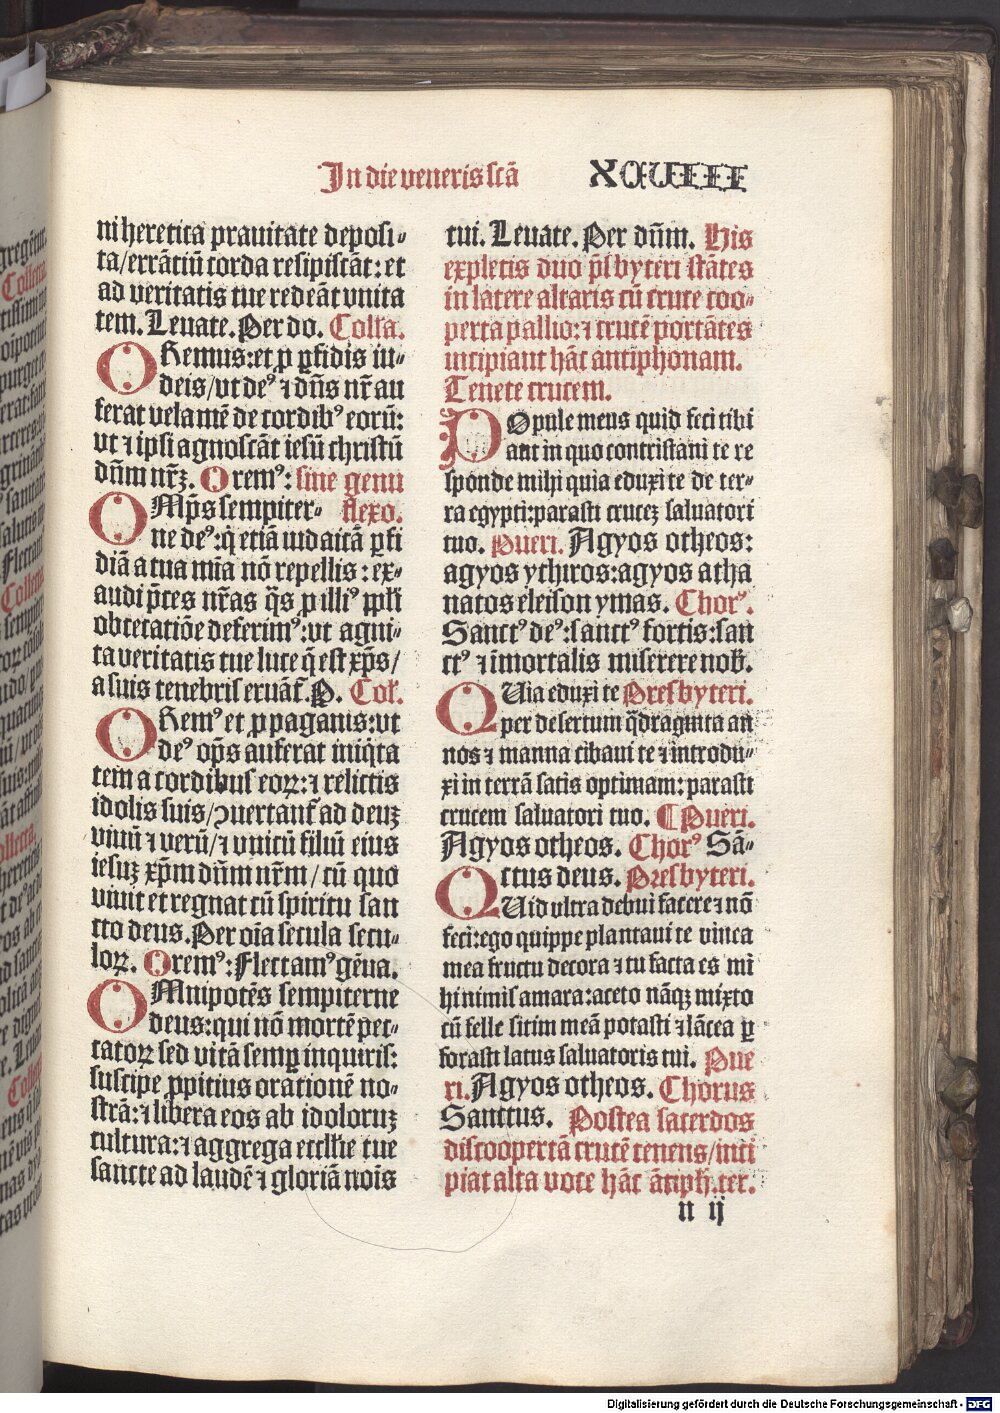 In die veneris scā XCVIIII
ni heretica prauitate deposi⸗
ta/errātiū corda resipiscāt: et
ad veritatis tue redeāt vnita
tem. Leuate. Per do. Collā.
ORemus: et ꝓ ꝑfidis iu⸗
deis/vt deꝰ ⁊ dn̄s nr̄ au
ferat velamē de cordibꝰ eorū:
vt ⁊ ipsi agnoscāt iesū christū
dn̄m nrꝫ. Oremꝰ: sine genu
flexo.
OMp̄s sempiter⸗
ne deꝰ: q̄ etiā iudaicā ꝑfi
diā a tua mīa nō repellis: ex⸗
audi p̄ces nr̄as q̄s ꝓ illiꝰ ppl̄i
obcecatiōe deferimꝰ: vt agni⸗
ta veritatis tue luce q̄ est xp̄s/
a suis tenebris eruāt̄. P. Col̄.
ORemꝰ et ꝓ paganis: vt
deꝰ op̄s auferat iniq̇ta
tem a cordibus eoꝝ: ⁊ relictis
idolis suis/ꝯuertant̄ ad deuꝫ
viuū ⁊ verū/⁊ vnicū filiū eius
iesuꝫ xp̄m dn̄m nr̄m/cū quo
viuit et regnat cū spiritu san
cto deus. Per oīa secula secu⸗
loꝝ. Oremꝰ: Flectamꝰ gēua.
OMnipotēs sempiterne
deus: qui nō mortē pec⸗
catoꝝ sed vitā semꝑ inquiris:
suscipe ꝓpitius orationē no⸗
strā: ⁊ libera eos ab idoloruꝫ
cultura: ⁊ aggrega eccl̄ie tue
sancte ad laudē ⁊ gloriā nois
tui. Leuate. Per dn̄m. His
expletis duo p̄sbyteri stātes
in latere altaris cū cruce coo⸗
perta pallio: ⁊ crucē portātes
incipiant hāc antiphonam.
Tenete crucem.
POpule meus quid feci tibi
aut in quo contristaui te re
sponde mihi quia eduxi te de ter⸗
ra egypti: parasti cruceꝫ saluatori
tuo. Pueri. Agyos otheos:
agyos ychiros: agyos atha
natos eleison ymas. Chorꝰ.
Sanctꝰ deꝰ: sanctꝰ fortis: san
ctꝰ ⁊ īmortalis miserere nob̄.
QUia eduxi te Presbyteri.
per desertum q̄draginta an
nos ⁊ manna cibaui te ⁊ introdu⸗
xi in terrā satis optimam: parasti
crucem saluatori tuo. ¶ Pueri.
Agyos otheos. Chorꝰ Sā⸗
ctus deus. Presbyteri.
QUid vltra debui facere ⁊ nō
feci: ego quippe plantaui te vinea
mea fructu decora ⁊ tu facta es mi
hi nimis amara: aceto nāqꝫ mixto
cū felle sitim meā potasti ⁊ lācea ꝑ
forasti latus saluatoris tui. Pue
ri. Agyos otheos. Chorus
Sanctus. Postea sacerdos
discoopertā crucē tenens/inci
piat alta voce hāc āntiph. ter.
n ij
Digitalisierung gefördert durch die Deutsche Forschungsgemeinschaft - DFG